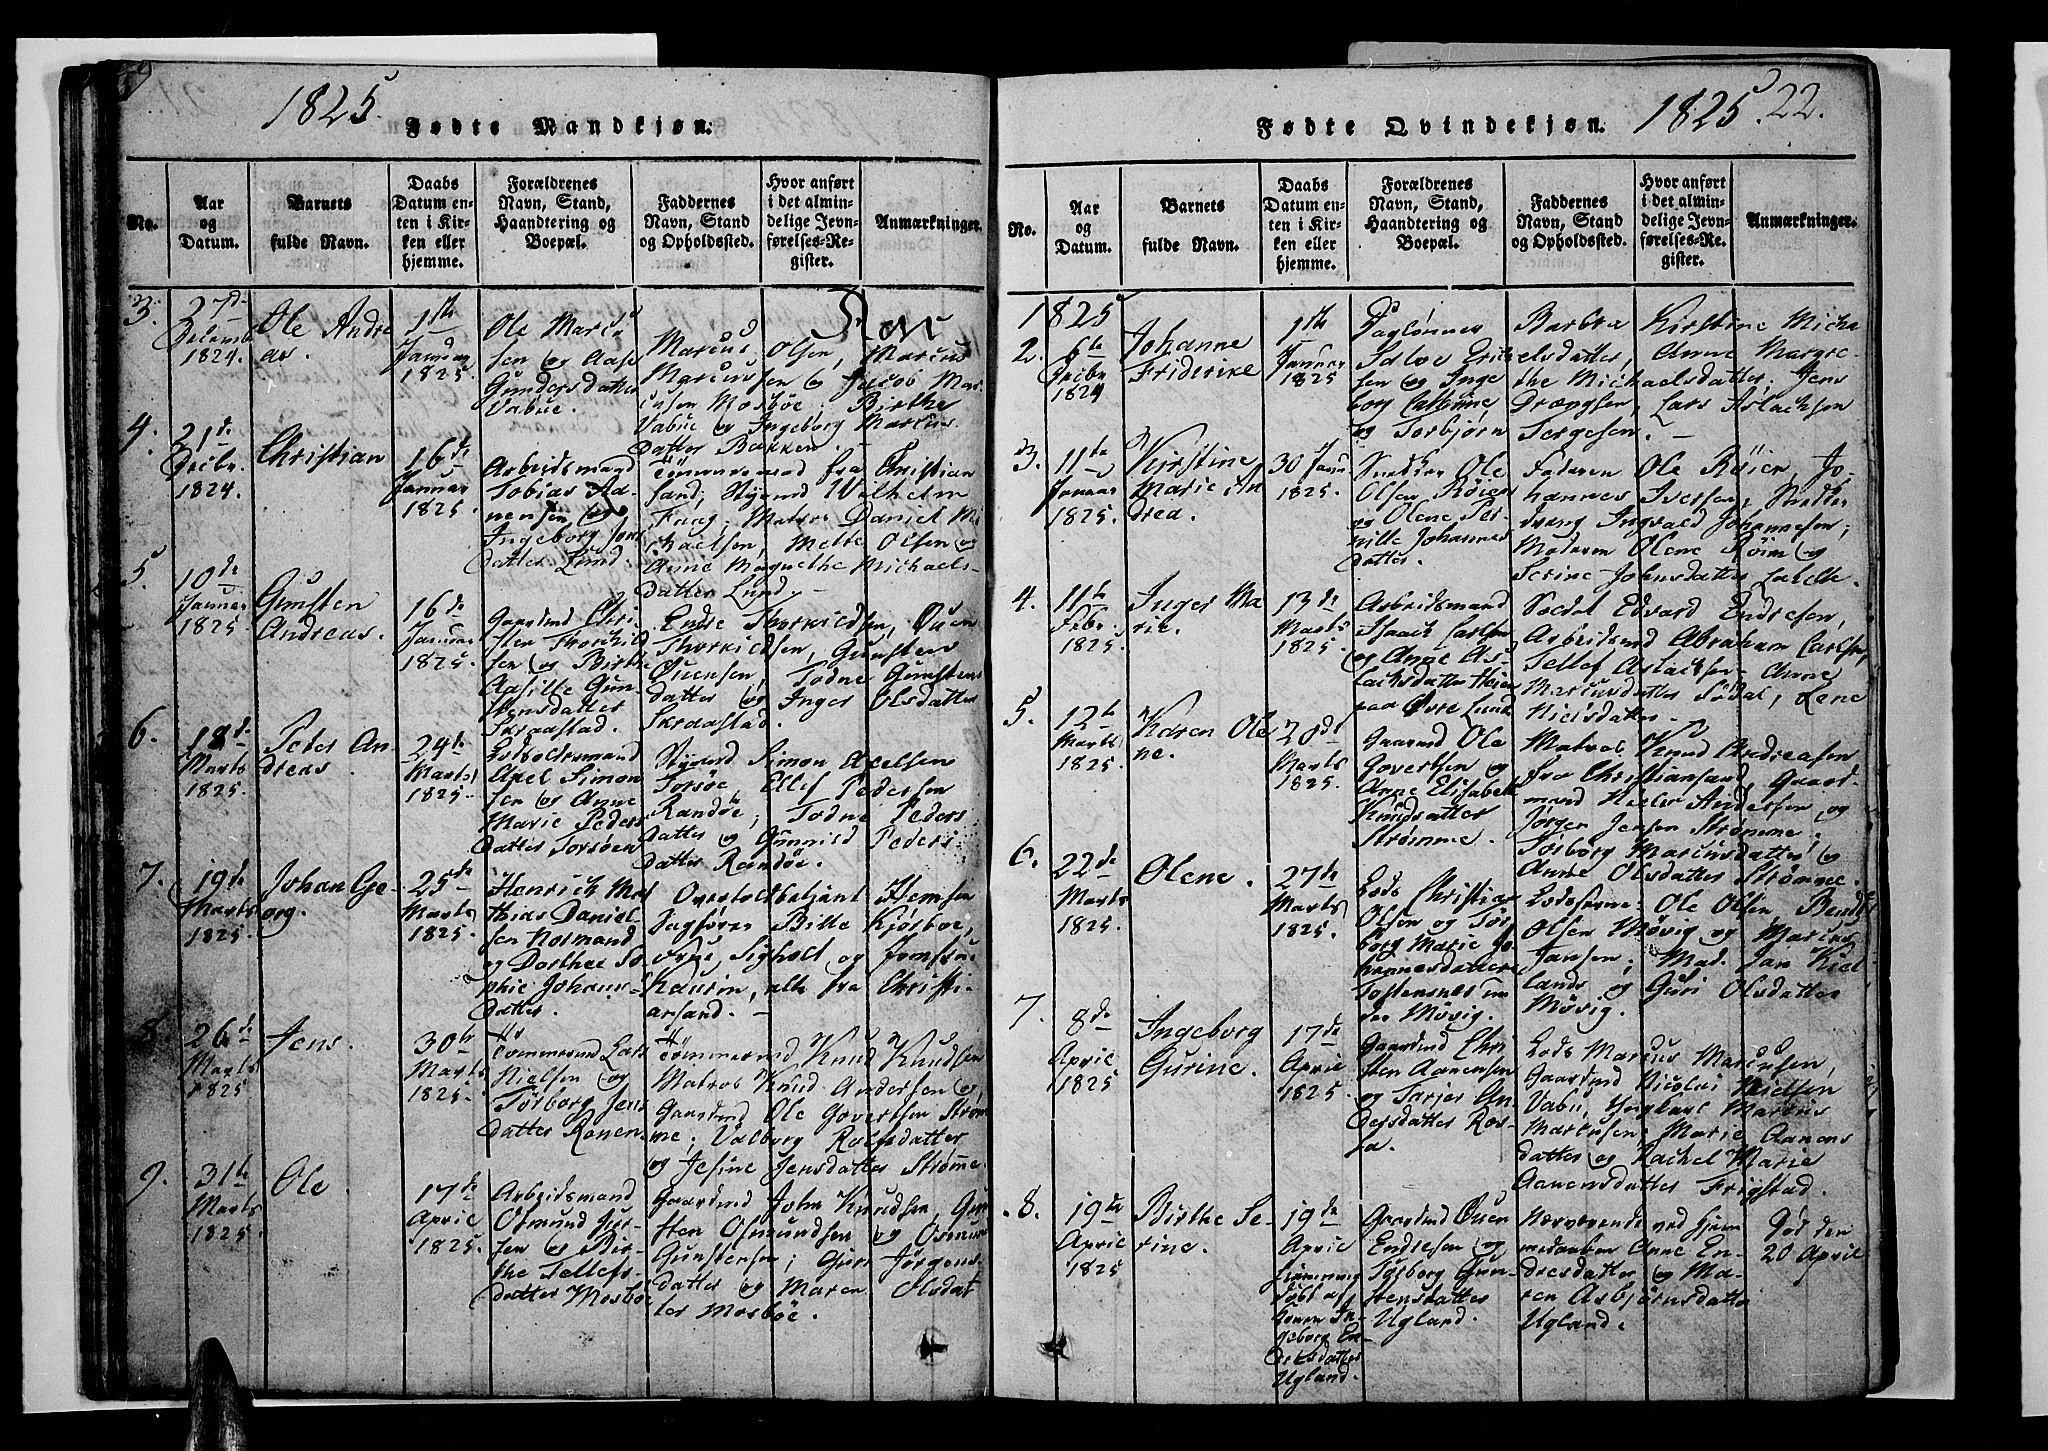 1825.
Fødte Mandkjøn.
No.
Aar og Datum.
Barnets fulde Navn.
Daabs Datum enten i Kirken eller hjemme.
Forældrenes Navn, Stand, Haandtering og Boepæl.
Faddernes Navn, Stand og Opholdssted.
Hvor anført i det almindelige Jevnførelses-Register.
Anmærkninger.
3.
27de
Decemb
1824.
Ole Andre
as.
1ste
Januar
1825.
Ole Marcu
sen og Aase
Gundersdatter
Vabue.
Marcus Olsen, Marcus
Marcussen og Jacob Mar
cusen Mosbøe. Birthe
Vabue og Ingeborg Marcus
datter Bakken. —
4.
21de
Decbr.
1824.
Christian
16de
Januar
1825.
Arbeidsmand
Tobias Aa
nensen og
Ingeborg Jens
datter Lund.
Tömmermand fra Christian
sand, Styrmd Wilhelm
Faag, Matros Daniel Mi
chaelsen, Mette Olsen og
Anne Magrethe Michaels-
datter Lund. —
5.
10de
Januar
1825.
Gunsten
Andreas.
16de
Januar
1825.
Gaardmd Chri
sten Thorkild
sen og Birthe
Aasille Gun
stensdatter
Skraastad.
Endre Thorkildsen, Ouen
Thorkildsen, Gunsten
Ouensen, Todne Gunstens
datter og Inger Olsdatter
Skraastad.
6.
18de
Marts
1825.
Peder An-
dreas.
24de
Marts
1825.
Axel Simon
sen og Anne
Marie Peders
datter Torsøen
Styrmd Simon Axelsen
Torsøe, Ellef Pedersen
Randøe; Todne Peders
datter og Gunnild Peders
datter Randøe.
7.
19de
Marts
1825.
Johan Ge-
org.
25de
Marts
1825.
Henrich Mat
thias Daniel
sen Normand
og Dorthea So
phie Johans-
datter.
Overtoldbetjent Hemsen
Jagfører Bille Kjørboe,
Sigholt og Jomfru
Kaurin, alle fra Christi-
ansand. —
8.
26de
Marts
1825
Jens.
30te
Marts
1825.
Tømmermd Lars
Nielsen og
Torborg Jens
datter Ronen
Tømmermd Knud Knudsen
Matros Knud Andersen og
Gaardmd Ole Govertsen Strøm
me; Valborg Rolfsdatter
og Jesine Jensdatter Strømme.
9.
31te
Marts
1825.
Ole.
17de
April
1825.
Arbeidsmand
Osmund Jør
sen og Bir-
the Tellefs-
datter Mosbøe
Gaardmd John Knudsen, Gun
sten Osmundsen og Osmun
Gunstensen; Guri Jørgens
datter og Maren Olsdat
ter Mosbøe.
1825. 22.
Fødte Qvindekjøn.
No.
Aar og Datum.
Barnets fulde Navn.
Daabs Datum enten i Kirken eller hjemme.
Forældrenes Navn, Stand, Haandtering og Boepæl.
Faddernes Navn, Stand og Opholdssted.
Hvor anført i det almindelige Jevnførelses-Register.
Anmærkninger.
1825
2.
6te
Decbr
1824
Johanne
Friderike
1ste
Januar
1825
Daglønner
Salve Erik
sen og Inge
borg Cathrine
og Torbjørn
Barbra Kirstine Micha
elsdatter, Anne Magre-
the Michaelsdatter. Jens
Drængsen, Lars Aslachsen
Tergesen. —
3.
11te
Januar
1825.
Kirstine
Marie An
drea.
30 Janu
1825.
Snedker Ole
Olsen Røien
og Olene Per
nille Johannes
datter.
Faderen Ole Røien, Jo-
hannes Iversen, Snedker
dreng Ingvald Johannesen;
Moderen Olene Røien og
Serine Johnsdatter Lahelle.
4.
11te
Febr.
1825.
Inger Ma
rie.
13de
Marts
1825.
Arbeidsmand
Isaach Carlsen
og Anne As
lachsdatter Heien
paa Øvre Lund
Soldat Edvard Endresen,
Arbeidsmd Abraham Carlsen,
Tellef Aslachsen, Anne
Marcusdatter Sødal, Lene
Nielsdatter.
5.
12te
Marts
1825.
Karen Ole
ne.
20de
Marts
1825.
Gaarmd Ole
Govertsen og
Anne Elisabeth
Knudsdatter
Strømme.
Matros Knud Andreasen
fra Christiansand, Gaard
mand Niels Andersen og
Jørgen Jensen Strømme.
Torborg Marcusdatter og
Anne Olsdatter Strømme.
6.
22de
Marts
1825.
Olene.
27de
Marts
1825.
Lods Christian
Olsen og Tor
borg Marie Jo
hannesdatter
Tostensnes un
der Møvig.
Lodserne Ole Olsen, Bendt
Olsen Møvig og Marcus
Jansen; Mad. Jan Kiel
lands og Guri Olsdatter
Møvig.
7.
8de
April
1825
Ingeborg
Gurine.
17de
April
1825.
Gaardmd Chri
sten Aanensen
og Torjer An
dersdatter Ros
sa.
Lods Marcus Marcusen,
Gaardmd Nicolai Nielsen
Vabu, Ynglart Marcus
Marcusen; Marie Aanens
datter og Rachel Marie
Aanensdatter Frigstad.
8.
19de
April
1825
Birthe Se-
rine.
19de
April
Hjemme
døbt af
Konen In
geborg En
dresdatter
Ugland.
Gaardmd Ouen
Endresen og
Torborg Gun
stensdatter
Ugland.
Nærværende ved hjem
medaaben Anne En-
dresdatter og Ma-
ren Asbjørnsdatter
Ugland.
Død den
20 April